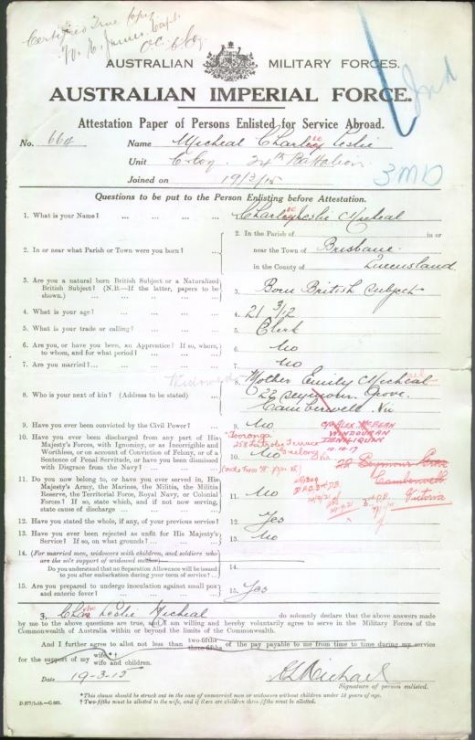 Certified True Copy
AUSTRALIAN MILITARY FORCES.
AUSTRALIAN IMPERIAL FORCE.
Attestation Paper of Persons Enlisted for Service Abroad.
No. 660 Name Micheal Charles Leslie
Unit C Coy. 24th Battalion
Joined on 19/3/15
3MD
Questions to be put to the Person Enlisting before Attestation.
1. What is your Name? ... 1. Charles Leslie Micheal
2. In or near what Parish or Town were you born? ... 2. In the Parish of in or
near the Town of Brisbane
in the County of Queensland.
3. Are you a natural born British Subject or a Naturalised
British Subject? (N.B.—If the latter, papers to be
shown.) 3. Born British Subject
4. What is your age? 4. 21 3/12
5. What is your trade or calling? 5. Clerk
6. Are you, or have you been, an Apprentice? If so, where,
to whom, and for what period? 6. No
7. Are you married? 7. No
8. Who is your next of kin? (Address to be stated) 8. Mother Emily Micheal
22 Seymour Grove
Camberwell Vic
9. Have you ever been convicted by the Civil Power? 9. No
10. Have you ever been discharged from any part of His
Majesty's Forces, with Ignominy, or as Incorrigible and
Worthless, or on account of Conviction of Felony, or of a
Sentence of Penal Servitude, or have you been dismissed
with Disgrace from the Navy? 10. No
Seymour Grove
Camberwell
Victoria
11. Do you now belong to, or have you ever served in, His
Majesty's Army, the Marines, the Militia, the Militia
Reserve, the Territorial Force, Royal Navy, or Colonial
Forces? If so, state which, and if not now serving,
state cause of discharge 11. No
12. Have you stated the whole, if any, of your previous service? 12. Yes
13. Have you ever been rejected as unfit for His Majesty's
Service? If so, on what grounds? 13. No
14. (For married men, widowers with children, and soldiers who
are the sole support of widowed mother)
Do you understand that no Separation Allowance will be issued
to you after embarkation during your term of service? 14.
15. Are you prepared to undergo inoculation against small pox
and enteric fever? 15. Yes
I, Charles Leslie Micheal do solemnly declare that the above answers made
by me to the above questions are true, and I am willing and hereby voluntarily agree to serve in the Military Forces of the
Commonwealth of Australia within or beyond the limits of the Commonwealth.
And I further agree to allot not less than two-fifths three-fifths of the pay payable to me from time to time during my service
for the support of my wife wife and children.
Date 19-3-15 C L Micheal
Signature of person enlisted.
*This clause should be struck out in the case of unmarried men or widowers without children under 18 years of age.
†Two-fifths must be allotted to the wife, and if there are children three-fifths must be allotted.